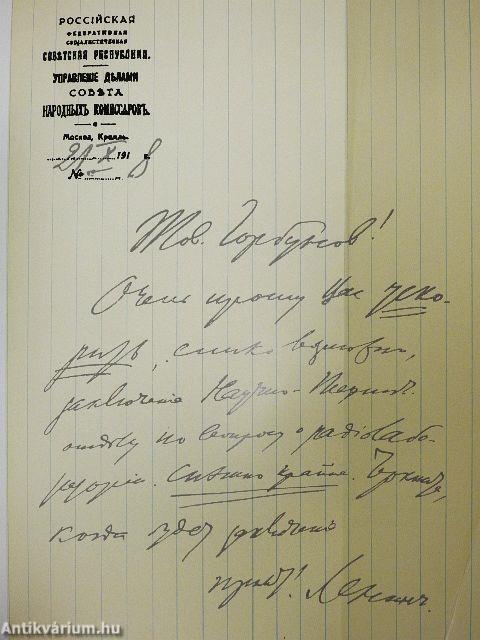 РОССІЙСКАЯ
ФЕДЕРАТИВНАЯ
СОЦІАЛИСТИЧЕСКАЯ
СОВѢТСКАЯ РЕСПУБЛИКА.
УПРАВЛЕНІЕ ДѢЛАМИ
СОВѢТА
НАРОДНЫХЪ КОМИССАРОВЪ.
Москва, Кремль.
21 X 1918 г.
№
Тов. Горбунов!
Очень прошу Вас уско-
рить, сколь возможно,
заключение Научно-Технич.
отдела по вопросу о радіолабо-
раторіи. Спешно крайне. Черкните,
когда будет
Ленин.
Antikvárium.hu